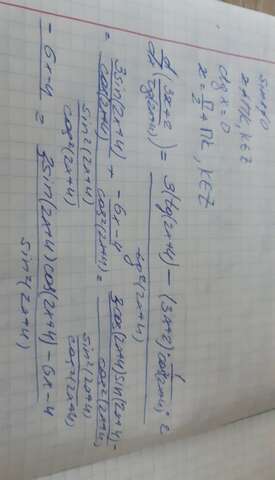 sinx≠0
x≠πk, k∈Z
ctgx=0
x = π/2 + πk, k∈Z
d/dx((3x+2)/(tg(2x+4))) = (3(tg(2x+4)) - (3x+2)· 1/cos²(2x+4) · 2)/(tg²(2x+4))
= (3sin(2x+4)/cos(2x+4) + (-6x-4)/cos²(2x+4))/(sin²(2x+4)/cos²(2x+4)) = (3cos(2x+4)sin(2x+4)-/cos²(2x+4))/(sin²(2x+4)/cos²(2x+4))
-6x-4 = (3sin(2x+4)cos(2x+4)-6x-4)/(sin²(2x+4))